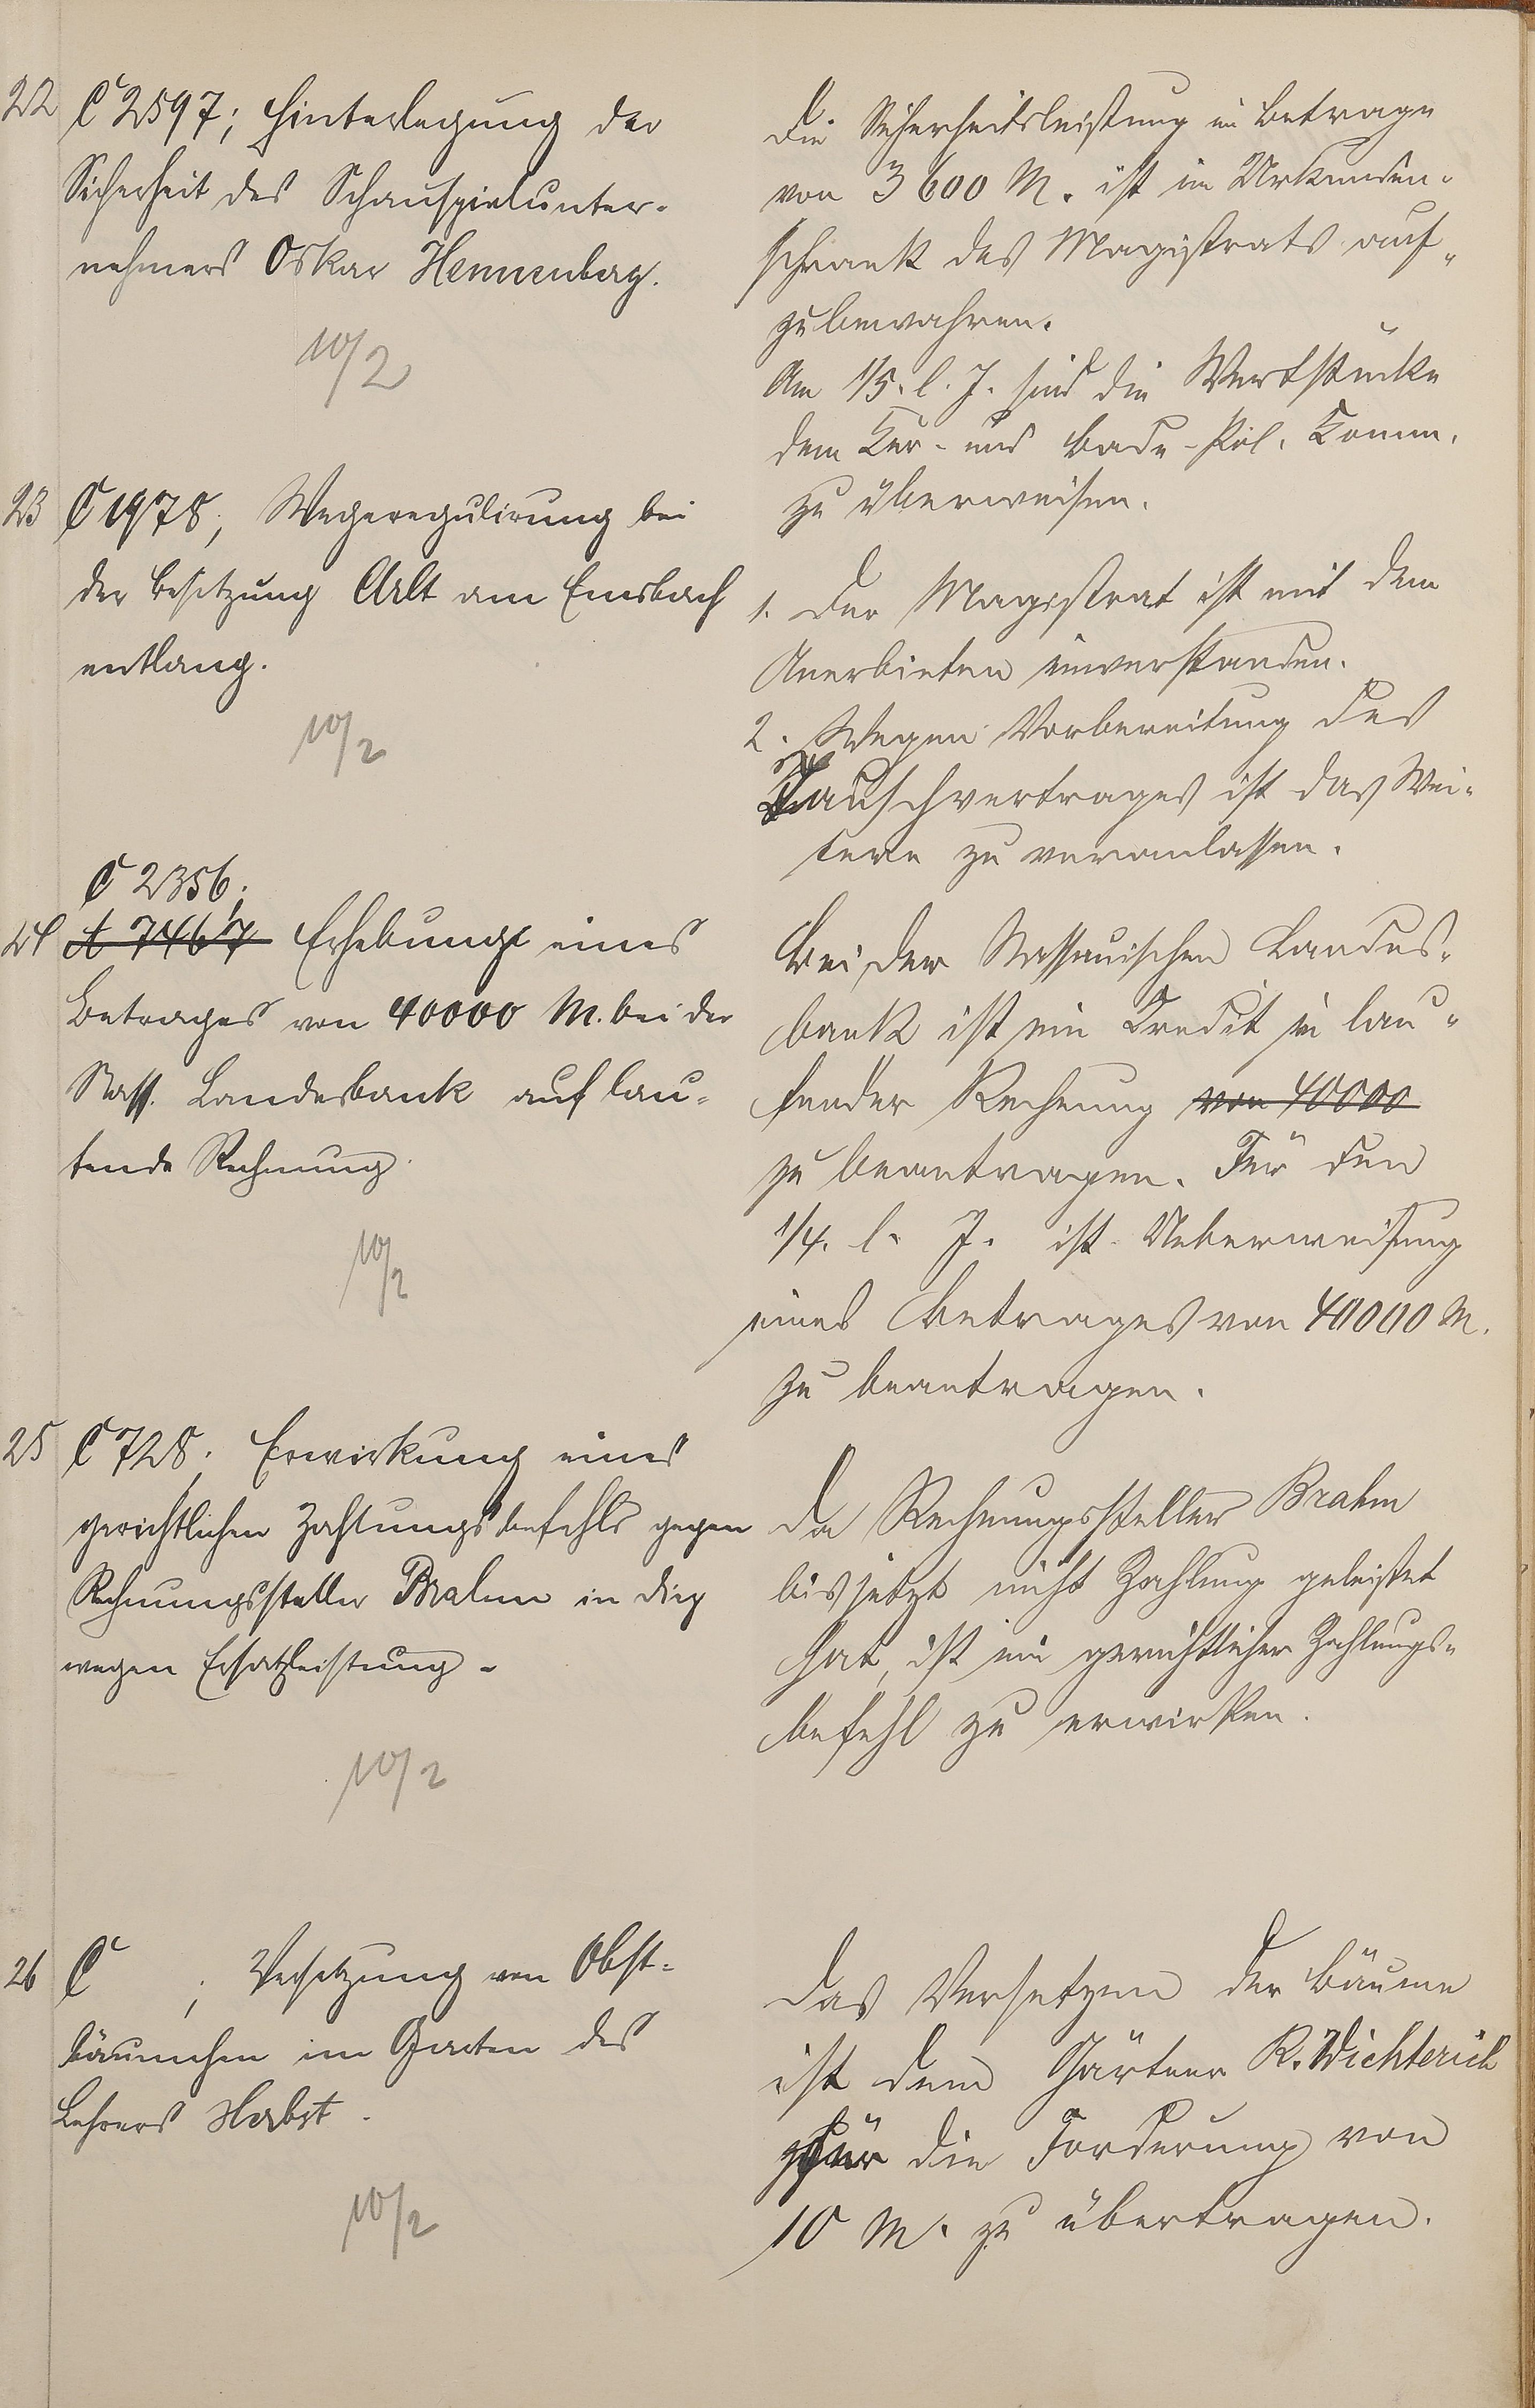 22 C 2597; Hinterlegung der
Sicherheit des Schauspielunter-
nehmers Oskar Hennenberg.
10/2
Die Sicherheitsleistung im Betrage
von 3600 M. ist im Urkunden-
schrank des Magistrats auf-
zubewahren.
Am 1/5. l. J. sind die Wertstücke
dem Kur- und Bade-Pol. Komm.
zu überweisen.
23 C 1978; Wegeregulirung bei
der Besitzung Arlt am Emsbach
entlang.
10/2
1. Der Magistrat ist mit dem
Anerbieten einverstanden.
2. Wegen Vorbereitung des
Tauschvertrages ist das Wei-
tere zu veranlassen.
C 2356;
24 A 7467 Erhebung eines
Betrages von 40000 M. bei der
Nass. Landesbank auf lau-
fende Rechnung.
10/2
Bei der Nassauischen Landes-
bank ist ein Credit in lau-
fender Rechnung von 40000
zu beantragen. Für den
1/4. l. J. ist Ueberweisung
eines Betrages von 40000 M.
zu beantragen.
25 C 728. Erwirkung eines
gerichtlichen Zahlungsbefehls gegen
Rechnungssteller Brahm in Diez
wegen Ersatzleistung.
10/2
Da Rechnungssteller Brahm
bis jetzt nicht Zahlung geleistet
hat, ist ein gerichtlicher Zahlungs-
befehl zu erwirken.
26 C ; Versetzung von Obst-
bäumchen im Garten des
Lehrers Herbst.
10/2
Das Versetzen der Bäume
ist dem Gärtner R. Wichterich
für die Forderung von
10 M. zu übertragen.